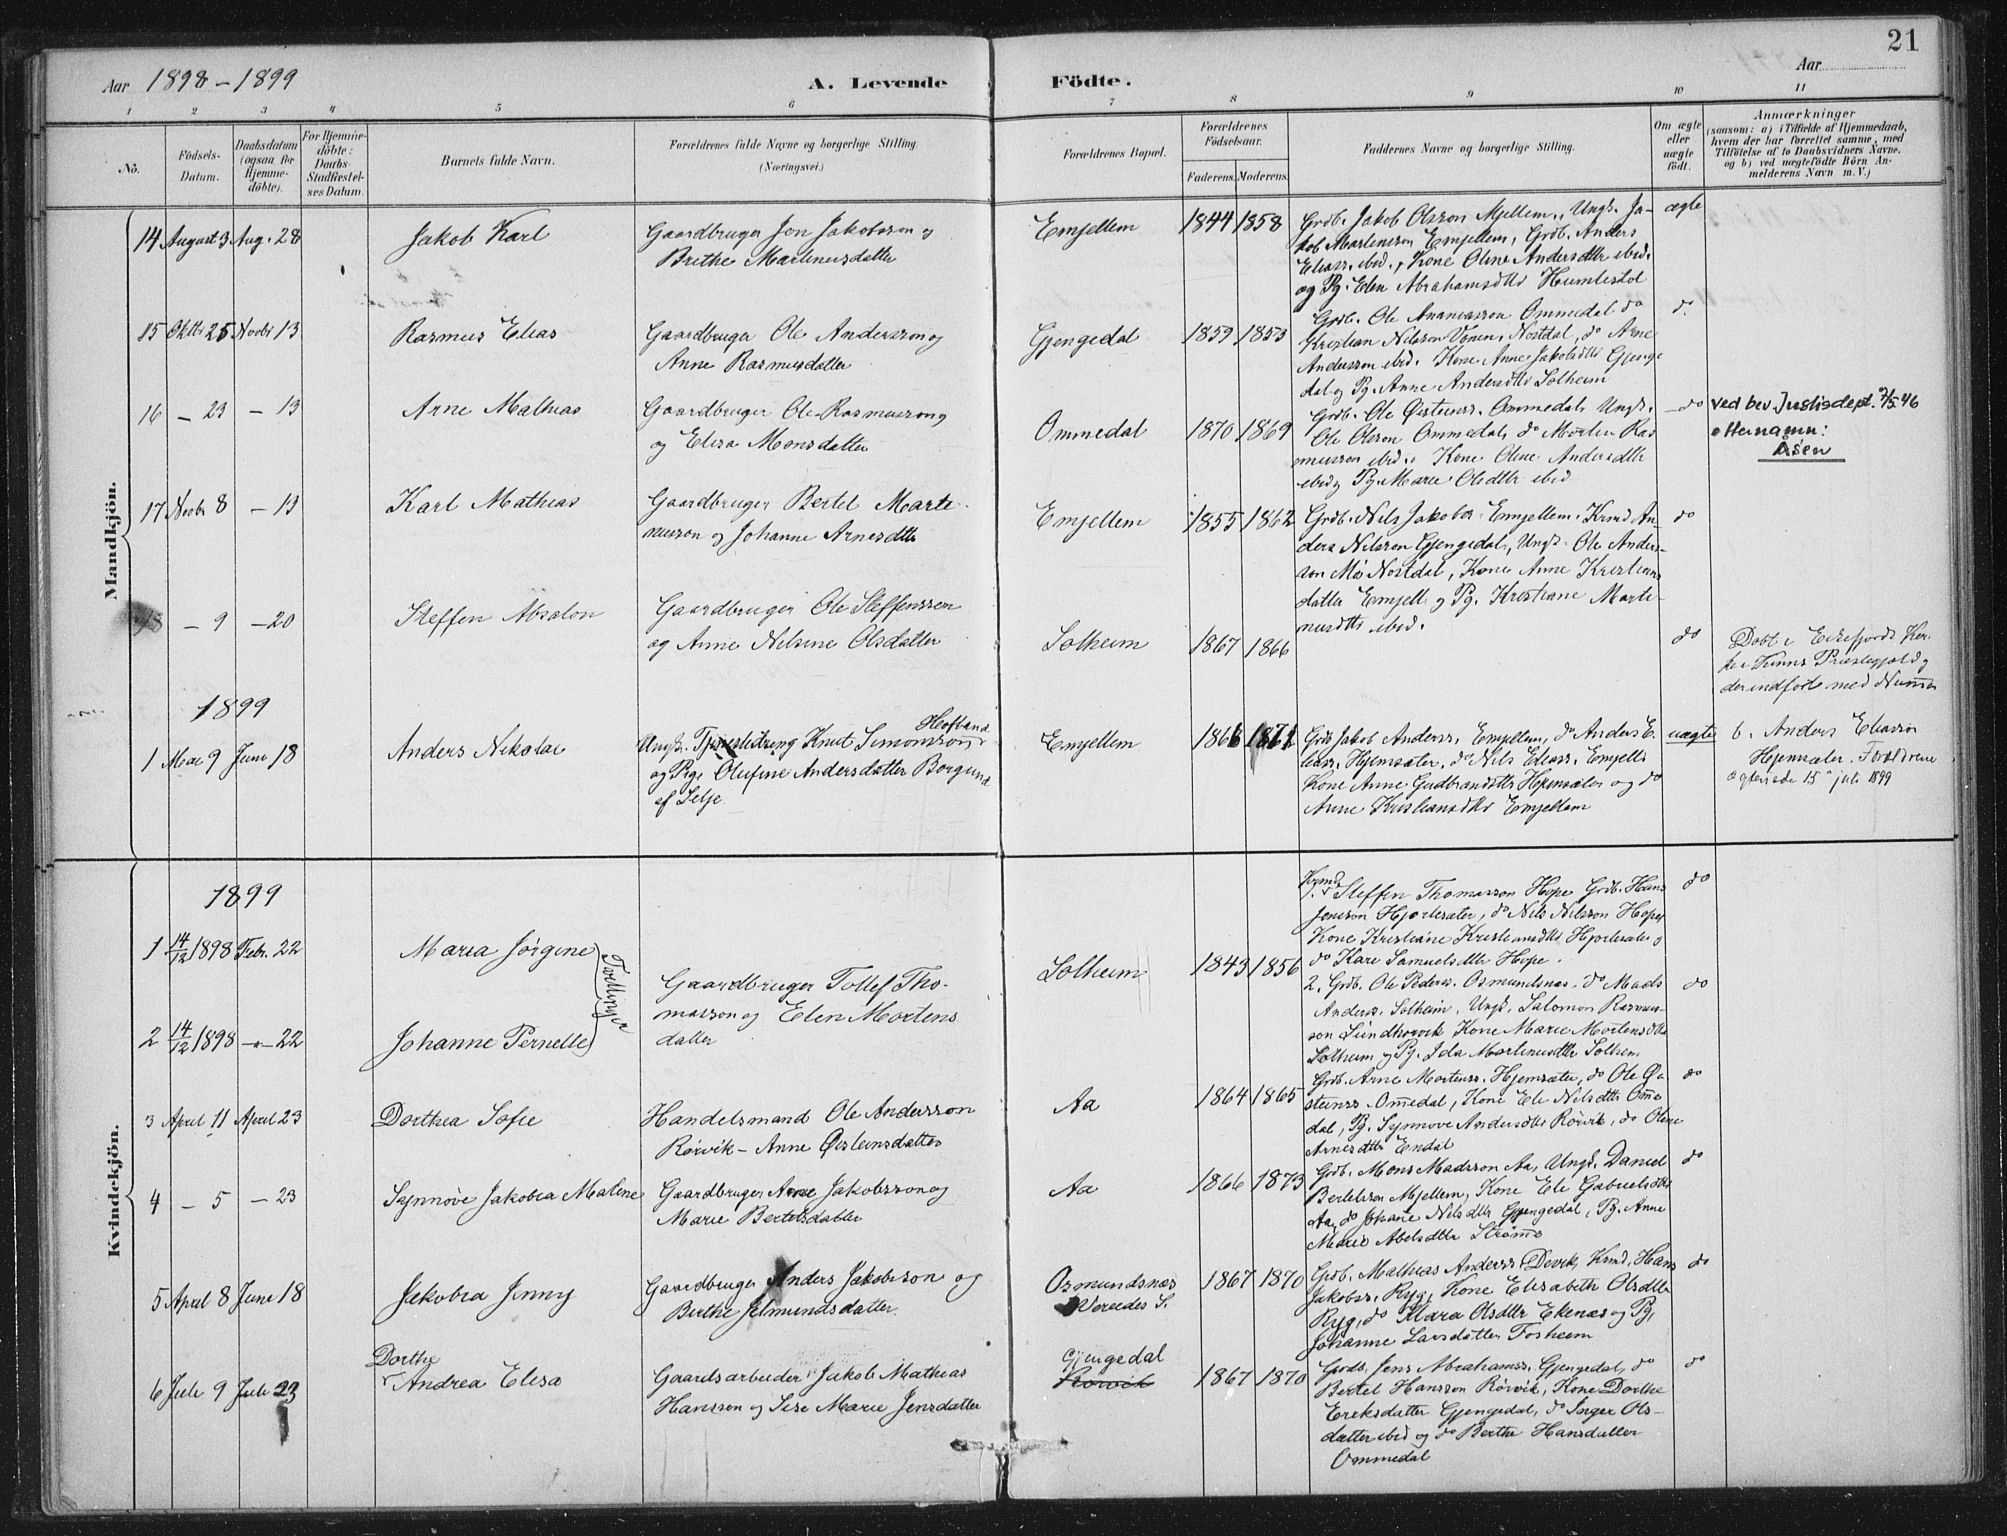 21
Aar 1898 - 1899
A. Levende Födte.
Aar
1 2 3 4 5 6 7 8 9 10 11
No.
Födsels-Datum.
Daabsdatum (ogsaa for Hjemme-döbte).
For Hjemme-döbte: Daabs-Stadfæstel-ses Datum.
Barnets fulde Navn.
Forældrenes fulde Navne og borgerlige Stilling. (Næringsvei.)
Forældrenes Bopæl.
Forældrenes Födselsaar.
Faderens. Moderens.
Faddernes Navne og borgerlige Stilling.
Om ægte eller uægte födt.
Anmærkninger
(saasom: a) i Tilfælde af Hjemmedaab, hvem der har forrettet samme, med Tilföielse af to Daabsvidners Navne, og b) ved uægtefödte Börn An-melderens Navn m. V.)
Mandkjön.
14 August 3 Aug. 28 Jakob Karl
Gaardbruger Jon Jakobsson og
Brithe Martinusdatter
Emjellem 1844 1858
Grdb. Jakob Olsson Mjellem, Ungk. Ja-
kob Martinsson Emjellem, Grdb. Anders
Eliass. ibid., Kone Oline Andersdttr ibid.
og Pg. Elen Abrahamsdttr Humlestol
ægte
15 Oktbr 25 Novbr 13 Rasmus Elias
Gaardbruger Ole Andersson og
Anne Rasmusdatter
Gjengedal 1859 1853
Grdb. Ole Ananiasson Ommedal do
Kristian Nilsson Vonen, Nostdal, do Arne
Andersson ibid. Kone Anne Jakobsdttr Gjenge
dal og Pg. Anne Andersdttr Solheim
do
16 - 23 - 13 Arne Mathias
Gaardbruger Ole Rasmusson og
og Elisa Monsdatter
Ommedal 1870 1869
Grdb. Ole Øistenss. Ommedal, Ungk.
Ole Olsson Ommedal, do Morten Ras
musson ibid. Kone Oline Andersdttr
ibid og Pg. Marie Olsdttr ibid
- do
ved bev. Justisdept. 2/5.46
etternamn:
Åsen
17 Novbr 8 - 13 Karl Mathias
Gaardbruger Bertel Marti-
nusson og Johanne Arnesdttr
Emjellem 1855 1862
Grdb. Nils Jakobss. Emjellem, Krmd An-
ders Nilsson Gjengedal, Ungk. Ole Anders-
son Mo Nostdal, Kone Anne Kristians
datter Emjell. og Pg. Kristiane Marti-
nusdttr ibid.
do
18 - 9 - 20 Steffen Absalon
Gaardbruger Ole Steffenssen
og Anne Nilsine Olsdatter
Solheim 1867 1866
do
Døbt i Eikefjords Kir-
ke i Kinns Præstegjæld og
der indført med Nummer
1899
1 Mai 9 Juni 18 Anders Nikolai
Ungk. Knut Simonsson
og Pg. Olufine Andersdatter Borgund
af Selje
Emjellem 1866 1871
Grdb Jakob Anderss. Emjellem, do Anders E.
liass. Hjemsæter, do Nils Eliass. Emjell.
Kone Anne Gudbrandsdttr Hjemsæter og do
Anne Kristiansdttr Emjellem
uægte
b. Anders Eliasson
Hjemsæter. Forældrene
ægteviede 15de juli 1899
Kvindekjön.
1899
1 14/12 1898 Febr. 22 Maria Jørgine
2 14/12 1898 - 22 Johanne Pernelle
Tvillinger
Gaardbruger Tollef Tho-
masson og Elen Mortens
datter
Solheim 1843 1856
1. Krmd Steffen Thomasson Hope Grdb. Hans
Jonsson Hjortesæter, do Nils Nilsson Hope,
Kone Kristiane Kristiansdttr Hjortesæter og
do Kari Samuelsdttr Hope.
do
2. Grdb. Ole Pederss. Osmundsnæs. do Mads
Anderss. Solheim, Ungk. Salomon Rasmus-
son Kone Marie Mortensdttr
Solheim og Pg. Ida Martinusdttr Solheim
do
3 April 11 April 23 Dorthea Sofie
Handelsmand Ole Andersson
Rørvik - Anne Øisteinsdatter
Aa 1864 1865
Grdb. Arne Mortenss. Hjemsæter, do Ole Øi
steinss. Ommedal, Kone Eli Nilsdttr Omme
dal, Pg. Synnøve Andersdttr Rørvik, do Oline
Arnesdttr Endal
do
4 - 5 - 23 Synnøve Jakobia Malene
Gaardbruger Arne Jakobsson og
Marie Bertelsdatter
Aa 1866 1873
Grdb. Mons Madsson Aa, Ungk. Daniel
Bertelsson Mjellem, Kone Eli Gabrielsdttr
Aa, do Johane Nilsdttr Gjengedal, Pg. Anne
Marie Abelsdttr Strømme
do
5 April 8 Juni 18 Jakobia Jenny
Gaardbruger Anders Jakobsson og
Birthe Jetmundsdatter
Osmundsnæs
Vereides S.
1867 1870
Grdb. Mathias Anderss. Devik, Krmd. Hans
Jakobss. Ryg, Kone Elisabeth Olsdttr
Ryg, do Klara Olsdttr Ekenæs og Pg.
Johanne Larsdatter Fosheim
do
6 Juli 9 Juli 23 Dorthe
Andrea Elisa
Gaardsarbeider Jakob Mathias
Hansson og Sise Marie Jensdatter
Gjengedal
Rørvik
1867 1870
Grdb. Jens Abrahamss. Gjengedal, do
Bertel Hansson Rørvik, Kone Dorthe
Eriksdatter Gjengedal, do Inger Ols-
datter ibid og do Berthe Hansdatter
Ommedal
do